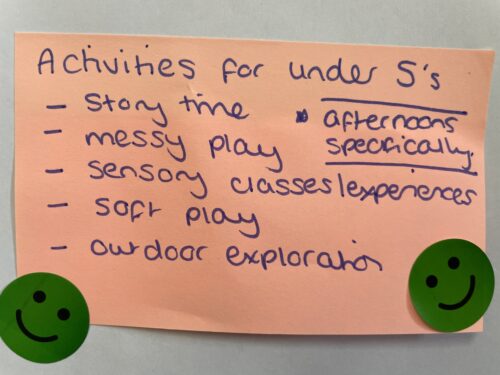 Activities for under 5's
- Story time
* afternoons
specifically.
- messy play
- sensory classes/experiences
- soft play
- outdoor exploration